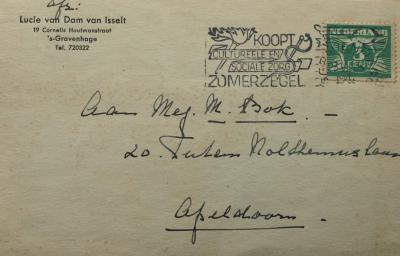 afz:
Lucie van Dam van Isselt
19 Cornelis Houtmanstraat
's-Gravenhage
Tel. 720322
KOOPT
CULTUREELE EN
SOCIALE ZORG
ZOMERZEGEL
NEDERLAND
CENT
Aan Mej. M. Bok. -
20.
Apeldoorn. -